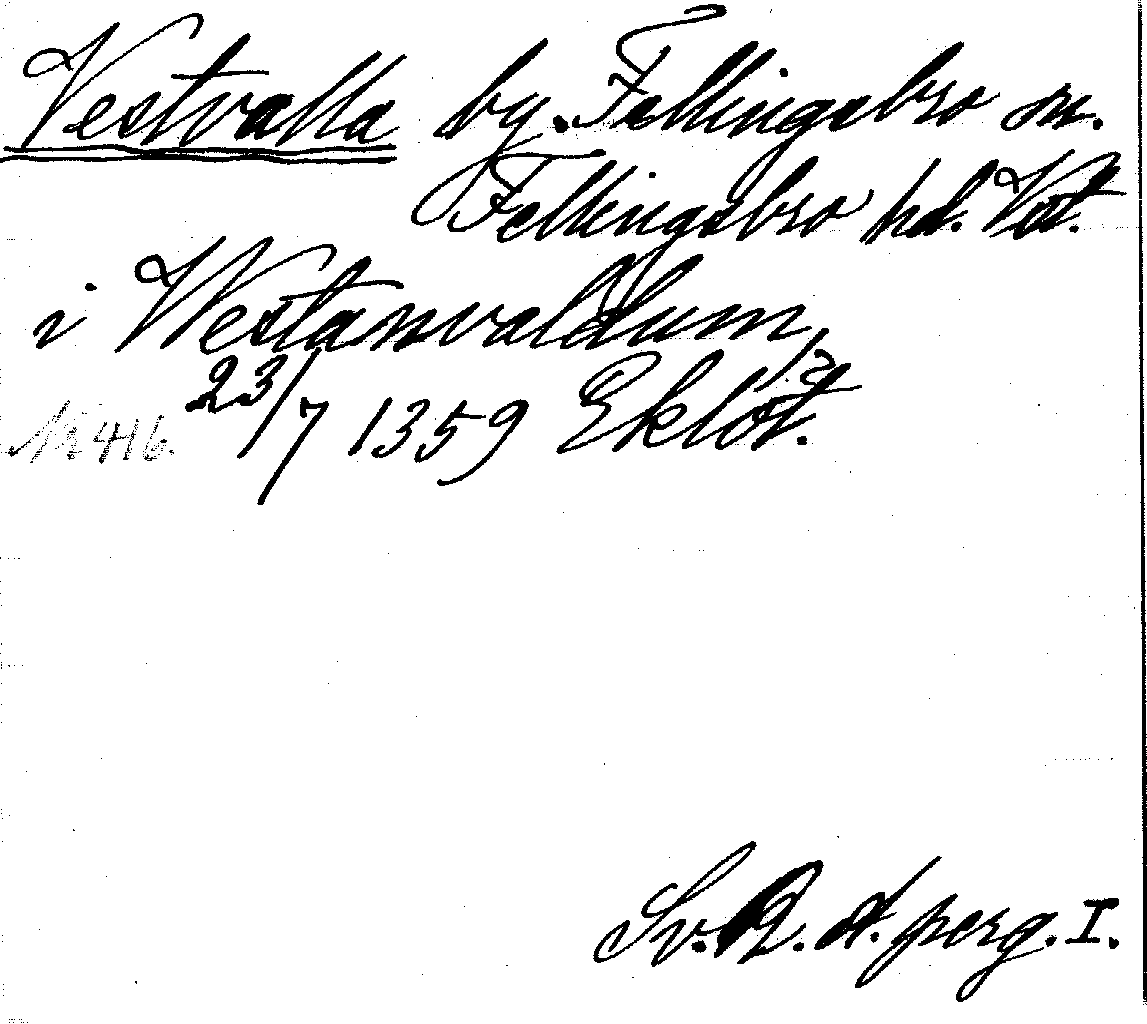 Vestvalla by. Fellingsbro sn.
Fellingsbro hd. Vstl.
i Westanvaldum,
23/7 1359 Eklöt.
Nr 416.
Sv. R. A. perg. I.